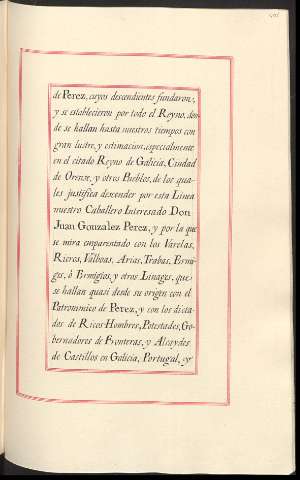 de Perez, cuyos descendientes fundaron,
y se establecieron por todo el Reyno, don-
de se hallan hasta nuestros tiempos con
gran lustre, y estimacion, especialmente
en el citado Reyno de Galicia, Ciudad
de Orense, y otros Pueblos, de los qua-
les justifica descender por esta Linea
nuestro Caballero Interesado Don
Juan Gonzalez Perez, y por la que
se mira emparentado con los Varelas,
Rieres, Valboas, Arias, Trabas, Bermi-
ges, ò Brmigios, y otros Linages, que
se hallan quasi desde su origen con el
Patronimico de Perez, y con los dicta-
dos de Ricos Hombres, Potestades, Go-
bernadores de Fronteras, y Alcaydes
de Castillos en Galicia, Portugal, y